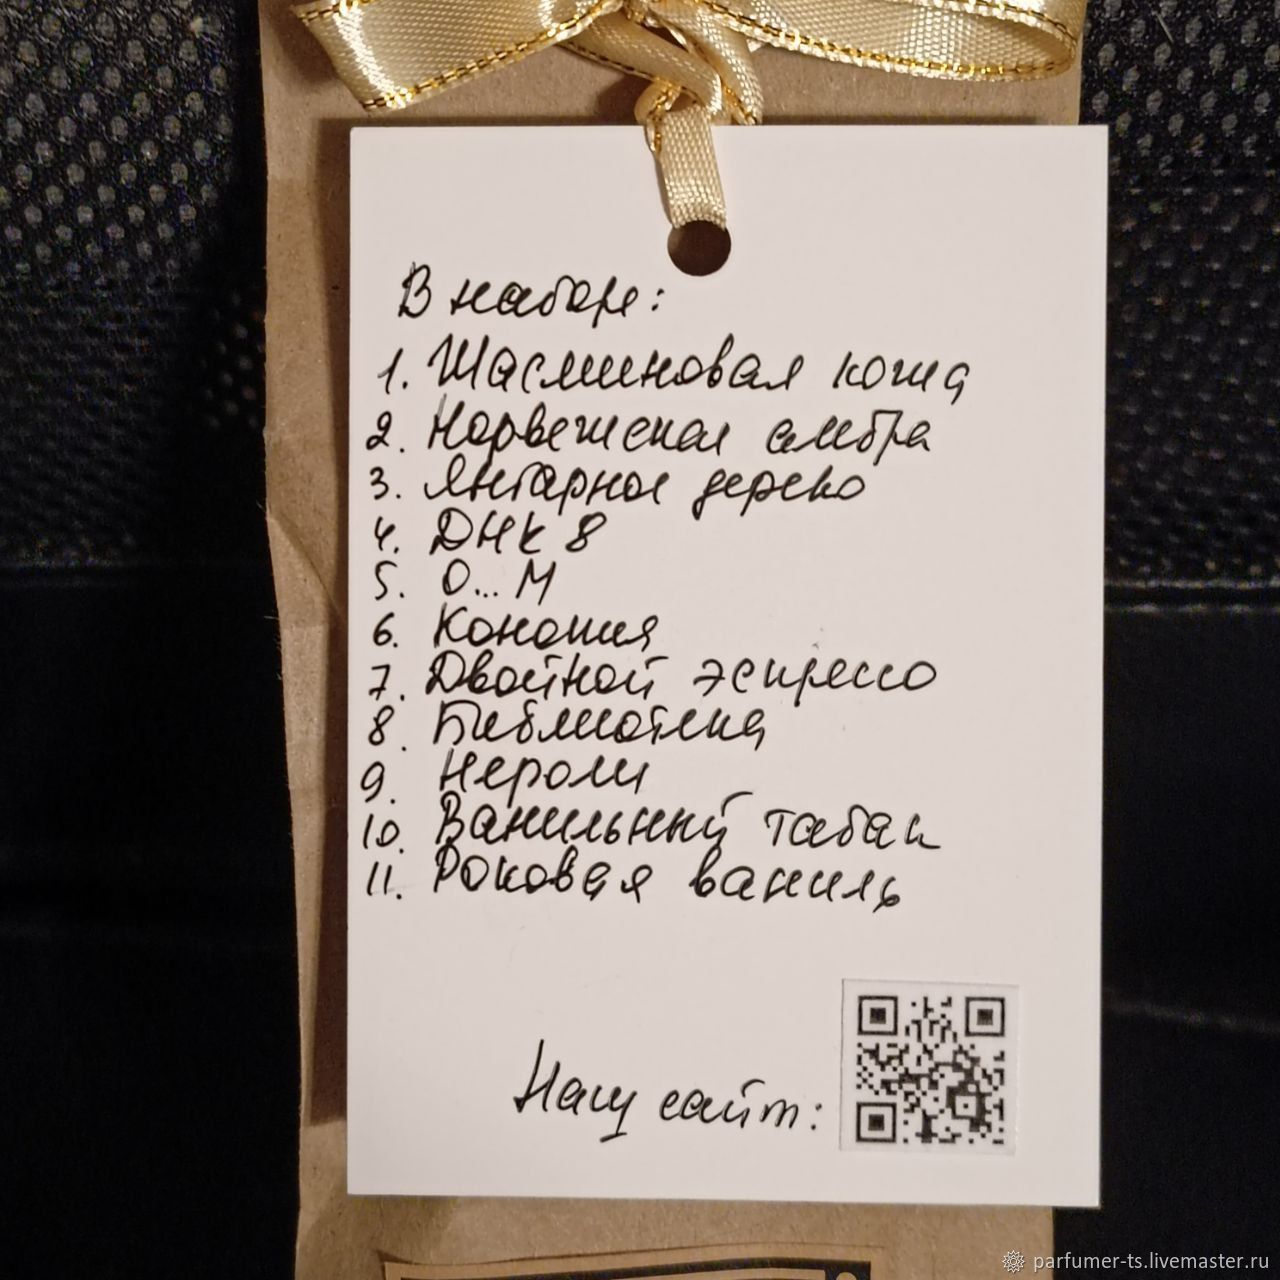 В наборе:
1. Жасминовая кожа
2. Норвежская амбра
3. Янтарное дерево
4. ДНК 8
5. О... М
6. Конопля
7. Двойной эспрессо
8. Библиотека
9. Нероли
10. Ванильный табак
11. Роковая ваниль
Наш сайт:
parfumer-ts.livemaster.ru